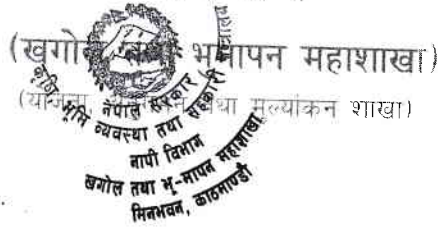 (खगोल तथा भू-मापन महाशाखा)
(योजना, तथा मूल्यांकन शाखा)
नेपाल सरकार
कृषि, भूमि व्यवस्था तथा सहकारी मन्त्रालय
नापी विभाग
खगोल तथा भू-मापन महाशाखा
मिनभवन, काठमाण्डौ